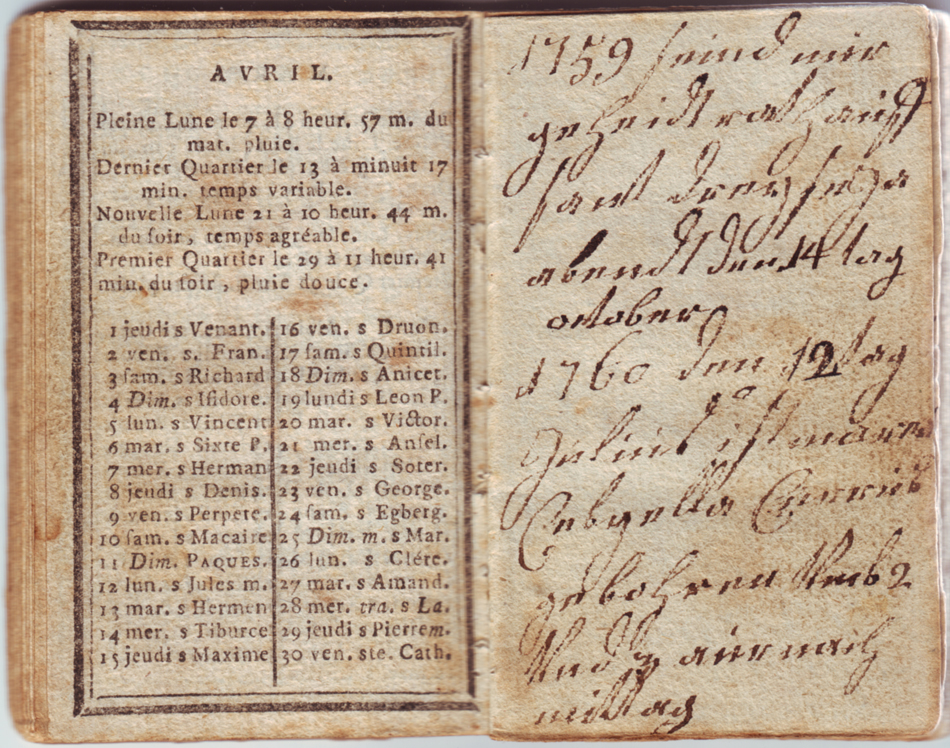 AVRIL.
Pleine Lune le 7 à 8 heur. 57 m. du
mat. pluie.
Dernier Quartier le 13 à minuit 17
min. temps variable.
Nouvelle Lune 21 à 10 heur. 44 m.
du soir, temps agréable.
Premier Quartier le 29 à 11 heur. 41
min. du soir, pluie douce.
1 jeudi s Venant.
2 ven. s. Fran.
3 sam. s Richard
4 Dim. s Isidore.
5 lun. s Vincent
6 mar. s Sixte P.
7 mer. s Herman
8 jeudi s Denis.
9 ven. s Perpete.
10 sam. s Macaire
11 Dim. PAQUES.
12 lun. s Jules m.
13 mar. s Hermen
14 mer. s Tiburce
15 jeudi s Maxime
16 ven. s Druon.
17 sam. s Quintil.
18 Dim. s Anicet.
19 lundi s Leon P.
20 mar. s Victor.
21 mer. s Ansel.
22 jeudi s Soter.
23 ven. s George.
24 sam. s Egberg.
25 Dim. m. s Mar.
26 lun. s Clére.
27 mar. s Amand.
28 mer. tra. s La.
29 jeudi s Pierrem.
30 ven. ste. Cath.
1759 seind mir
geheidtrath auff
sant
abendt den 14 tag
october
1760 den 12 tag
ist
gebohren
Und nach
mittag